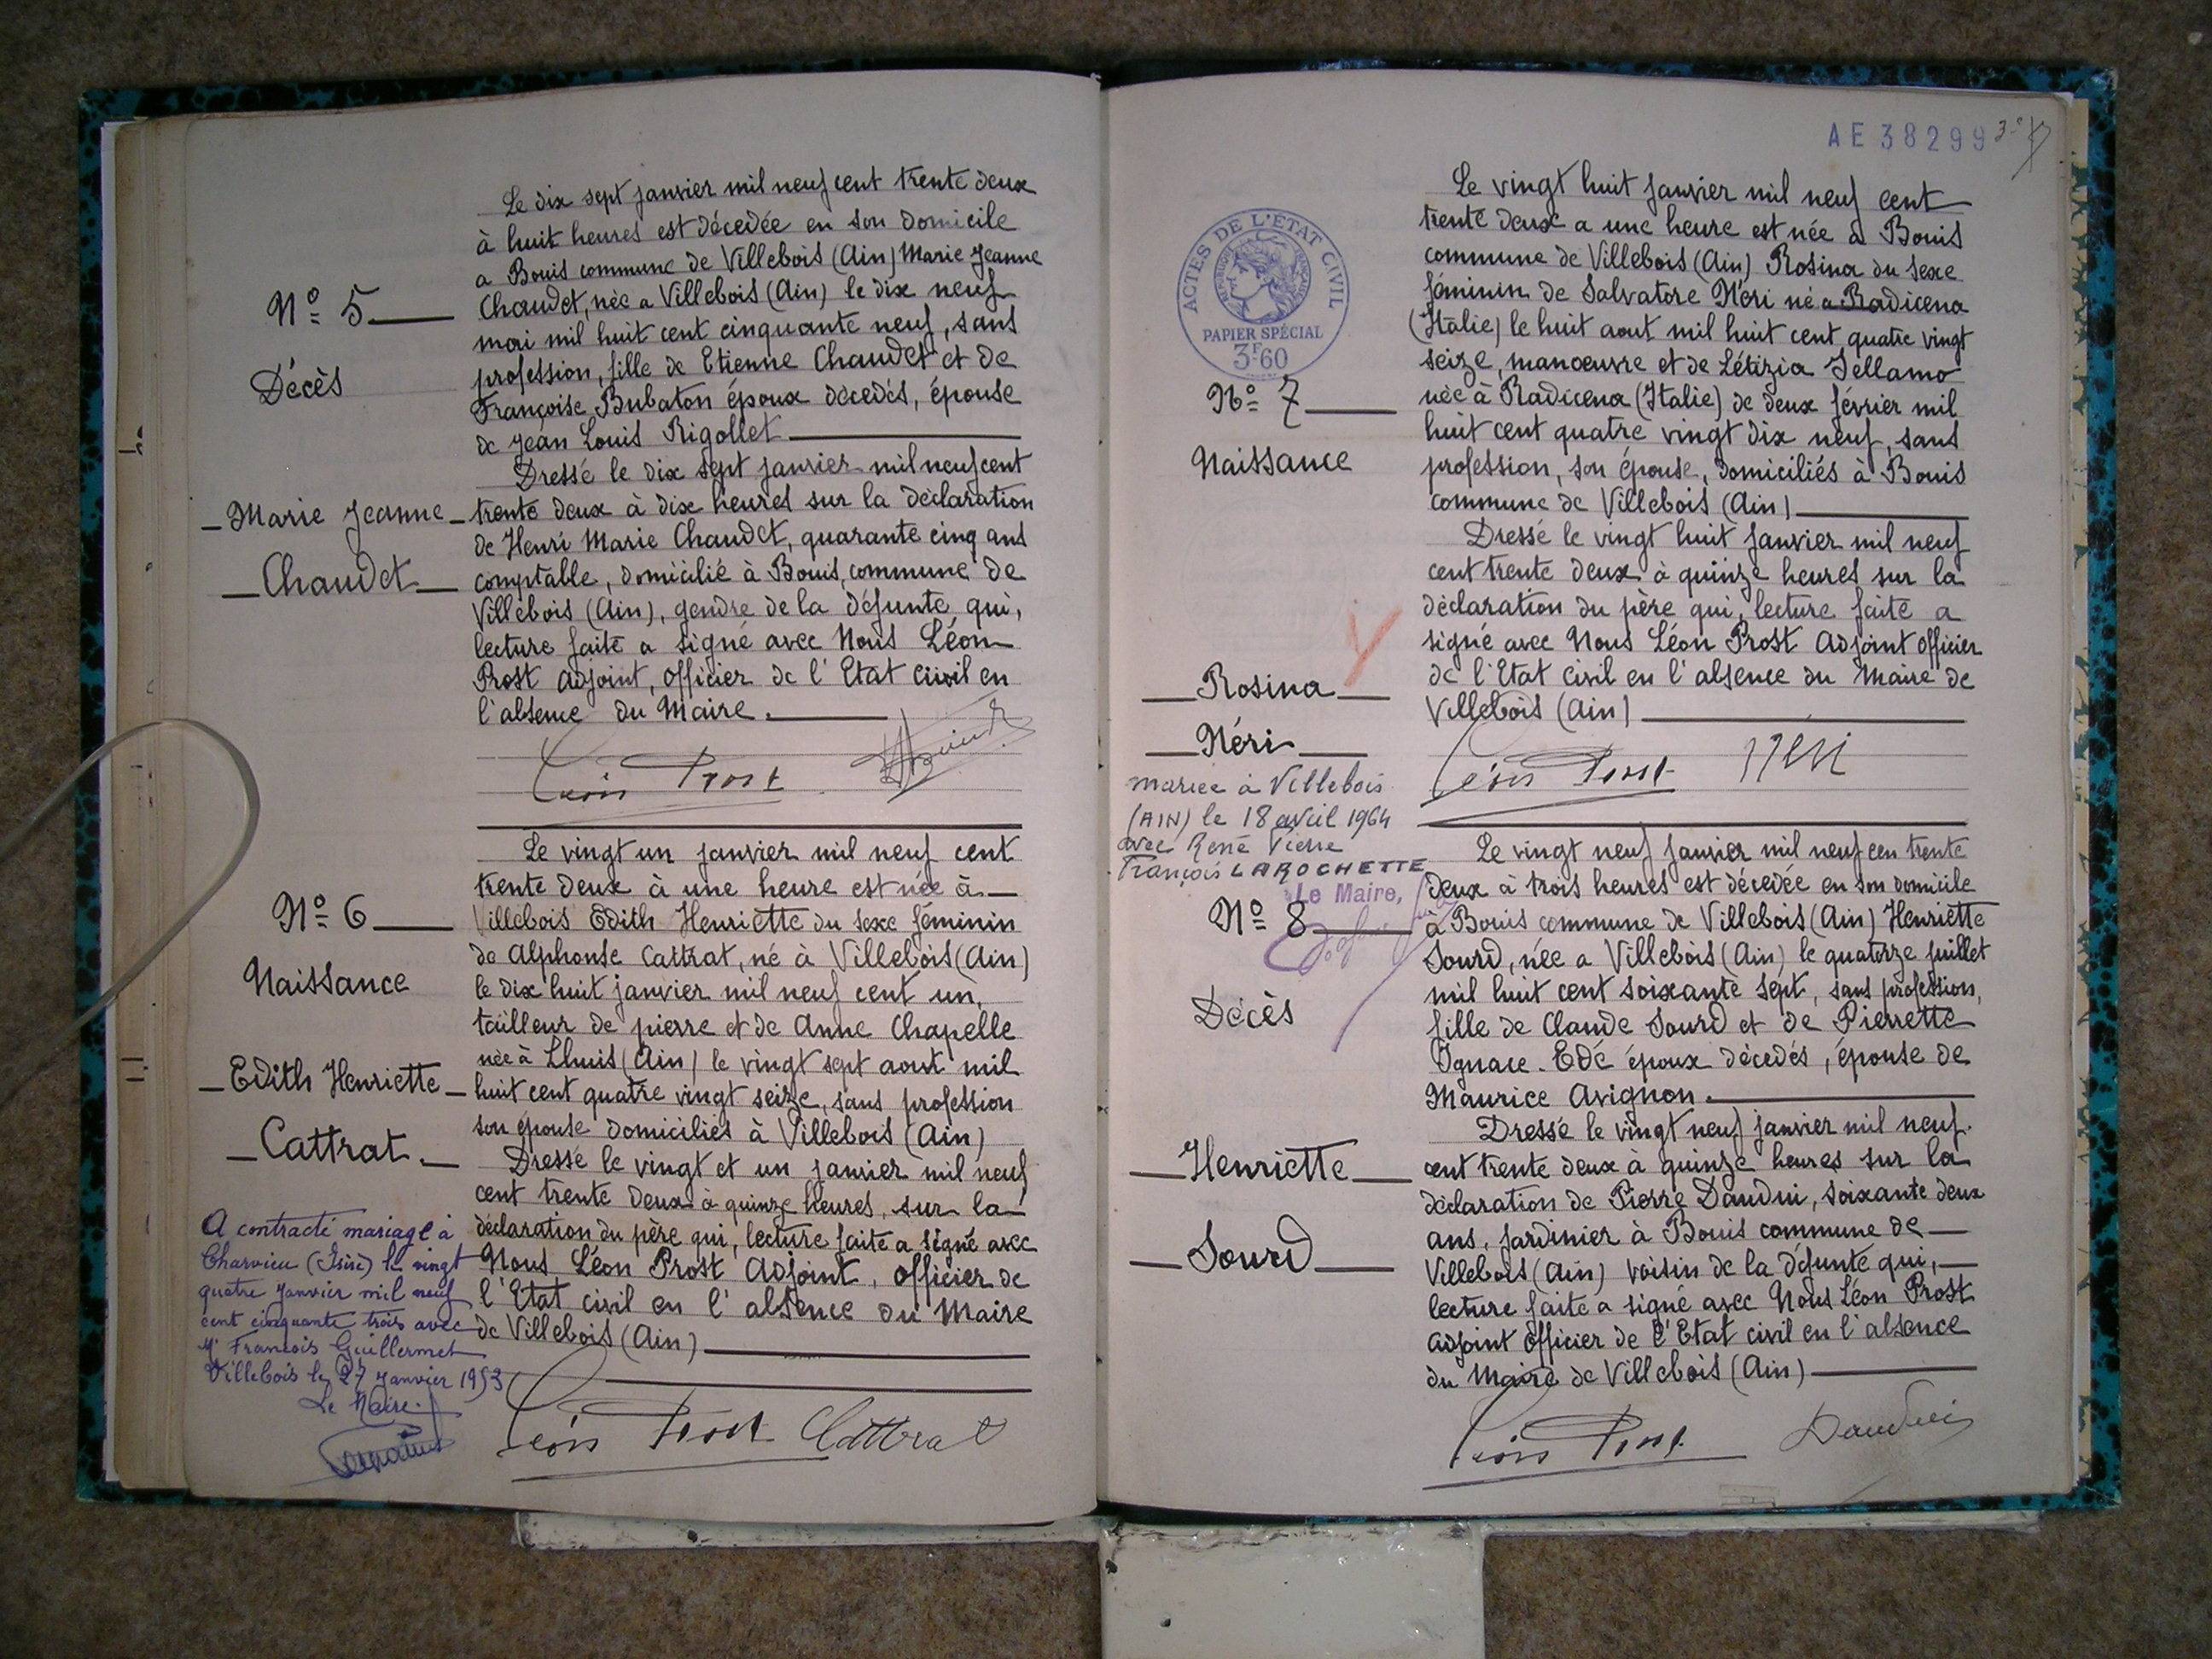 Le dix sept janvier mil neuf cent trente deux
à huit heures est décedée en son domicile
a Bouis commune de Villebois (Ain) Marie Jeanne
Chaudet, née a Villebois (Ain) le dix neuf
mai mil huit cent cinquante neuf, sans
profession, fille de Etienne Chaudet et de
Françoise Bubaton époux décedés, épouse
de Jean Louis Rigollet
Dressé le dix sept janvier mil neuf cent
trente deux à dix heures sur la déclaration
de Henri Marie Chaudet, quarante cinq ans
comptable, domicilié à Bouis, commune de
Villebois (Ain), gendre de la défunte qui,
lecture faite a signé avec Nous Léon
Prost adjoint, officier de l'Etat civil en
l'absence du Maire.
Léon Prost
Nº 5
Décès
Marie Jeanne
Chaudet
Le vingt un janvier mil neuf cent
trente deux à une heure est née à
Villebois Edith Henriette du sexe féminin
de Alphonse Cattrat, né à Villebois (Ain)
le dix huit janvier mil neuf cent un,
tailleur de pierre et de Anne Chapelle
née à Lhuis (Ain) le vingt sept aout mil
huit cent quatre vingt seize, sans profession
son épouse domiciliés à Villebois (Ain)
Dressé le vingt et un janvier mil neuf
cent trente deux à quinze heures, sur la
déclaration du père qui, lecture faite a signé avec
Nous Léon Prost Adjoint, officier de
l'Etat civil en l'absence du Maire
de Villebois (Ain)
Léon Prost Cattrat
Nº 6
Naissance
Edith Henriette
Cattrat
A contracté mariage à
Charvieu (Isère) le vingt
quatre Janvier mil neuf
cent cinquante trois avec
Mr François Guillermet
Villebois le 27 Janvier 1953
Le Maire.
AE 38299
ACTES DE L'ETAT CIVIL
REPUBLIQUE FRANÇAISE
PAPIER SPÉCIAL
3F60
Le vingt huit janvier mil neuf cent
trente deux a une heure est née a Bouis
commune de Villebois (Ain) Rosina du sexe
féminin de Salvatore Néri né a Radicena
(Italie) le huit aout mil huit cent quatre vingt
seize, manœuvre et de Létizia Iellamo
née à Radicena (Italie) de deux février mil
huit cent quatre vingt dix neuf, sans
profession, son épouse, domiciliés à Bouis
commune de Villebois (Ain)
Dressé le vingt huit janvier mil neuf
cent trente deux à quinze heures sur la
déclaration du père qui, lecture faite a
signé avec Nous Léon Prost Adjoint officier
de l'Etat civil en l'absence du Maire de
Villebois (Ain)
Léon Prost Neri
Nº 7
Naissance
Rosina
Néri
mariée à Villebois
(AIN) le 18 avril 1964
avec René Pierre
François LAROCHETTE
Le Maire,
Le vingt neuf janvier mil neuf cen trente
deux à trois heures est décedée en son domicile
à Bouis commune de Villebois (Ain) Henriette
Sourd, née a Villebois (Ain) le quatorze juillet
mil huit cent soixante sept, sans profession,
fille de Claude Sourd et de Pierrette
Ignace. Edé époux décedés, épouse de
Maurice Avignon.
Dressé le vingt neuf janvier mil neuf
cent trente deux à quinze heures sur la
déclaration de Pierre Daudui, soixante deux
ans, jardinier à Bouis commune de
Villebois (Ain) voisin de la défunte qui,
lecture faite a signé avec Nous Léon Prost
adjoint officier de l'Etat civil en l'absence
du Maire de Villebois (Ain)
Léon Prost Daudui
Nº 8
Décès
Henriette
Sourd